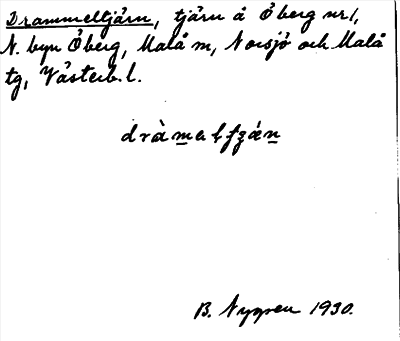 Drammeltjärn, tjärn å Öberg nr 1,
N. byn Öberg, Malå sn, Norsjö och Malå
tg, Västerb. l.
B. Nygren 1930.